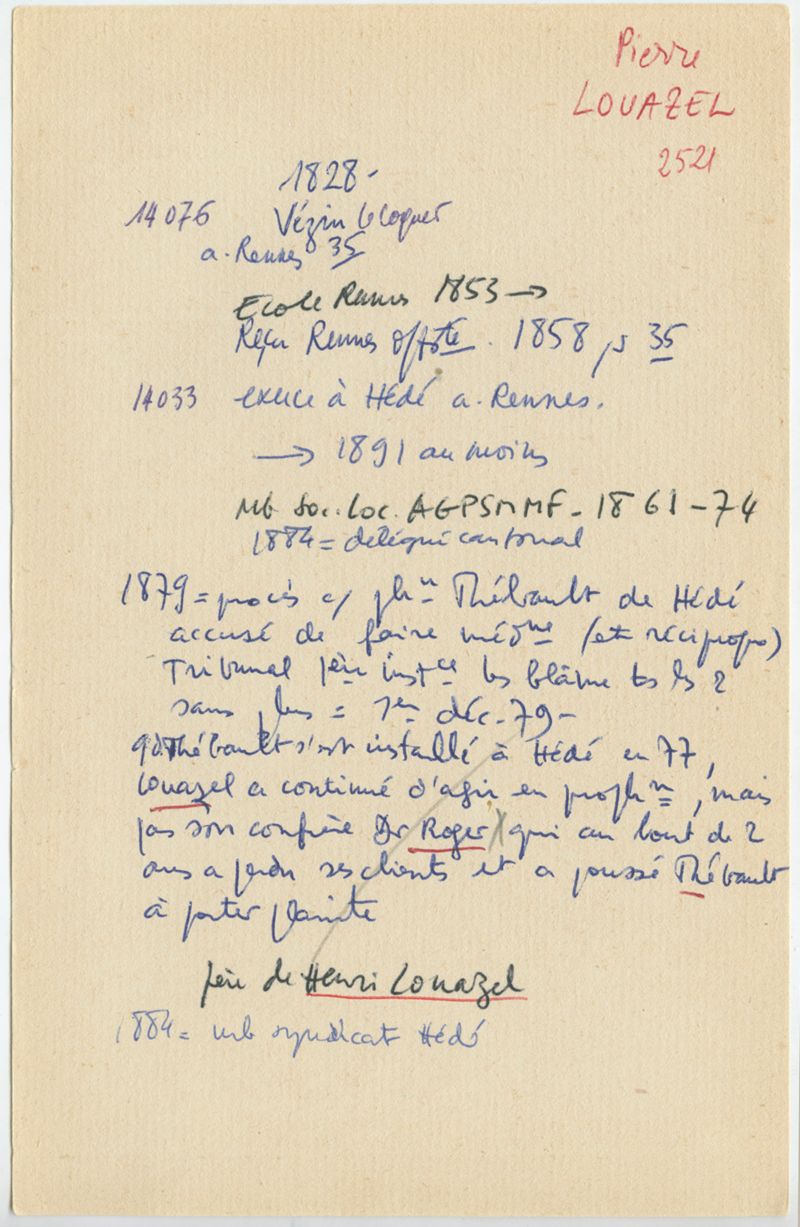 Pierre
LOUAZEL
2521
1828 -
14076 Vézin le Coquet
a. Rennes 35
Ecole Rennes 1853 →
Reçu Rennes offsté . 1858 ps 35
14033 exerce à Hédé a. Rennes.
→ 1891 au moins
Mb Soc. Loc. AGPSMMF - 1861 - 74
1884 = délégué cantonal
1879 = procès c/ phn Thébault de Hédé
accusé de faire médne (et récipropo)
Tribunal 1ère instce les blâme ts ls 2
sans plus = 1er déc. 79 -
qd Thébault s'est installé à Hédé en 77,
Louazel a continué d'agir en prophn, mais
pas son confrère Dr Roger qui au bout de 2
ans a perdu ses clients et a poussé Thébault
à porter plainte
père de Henri Louazel
1884 = mb syndicat Hédé